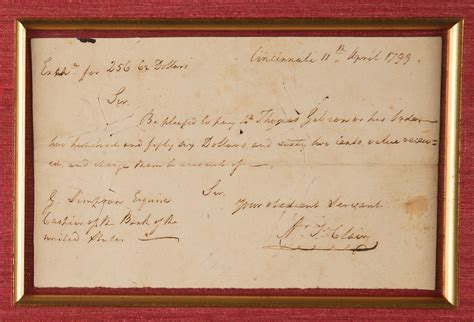 Cincinnati 11th April 1799.
Exch. for 256 62 Dollars
Sir.
Be pleased to pay Thomas Gibson or his order
two hundred and fifty six Dollars and sixty two cents value receiv
ed, and charge them to account of
Sir.
Your obedient Servant
G. Simpson Esquire
Cashier of the Bank of the
United States
St. Clair